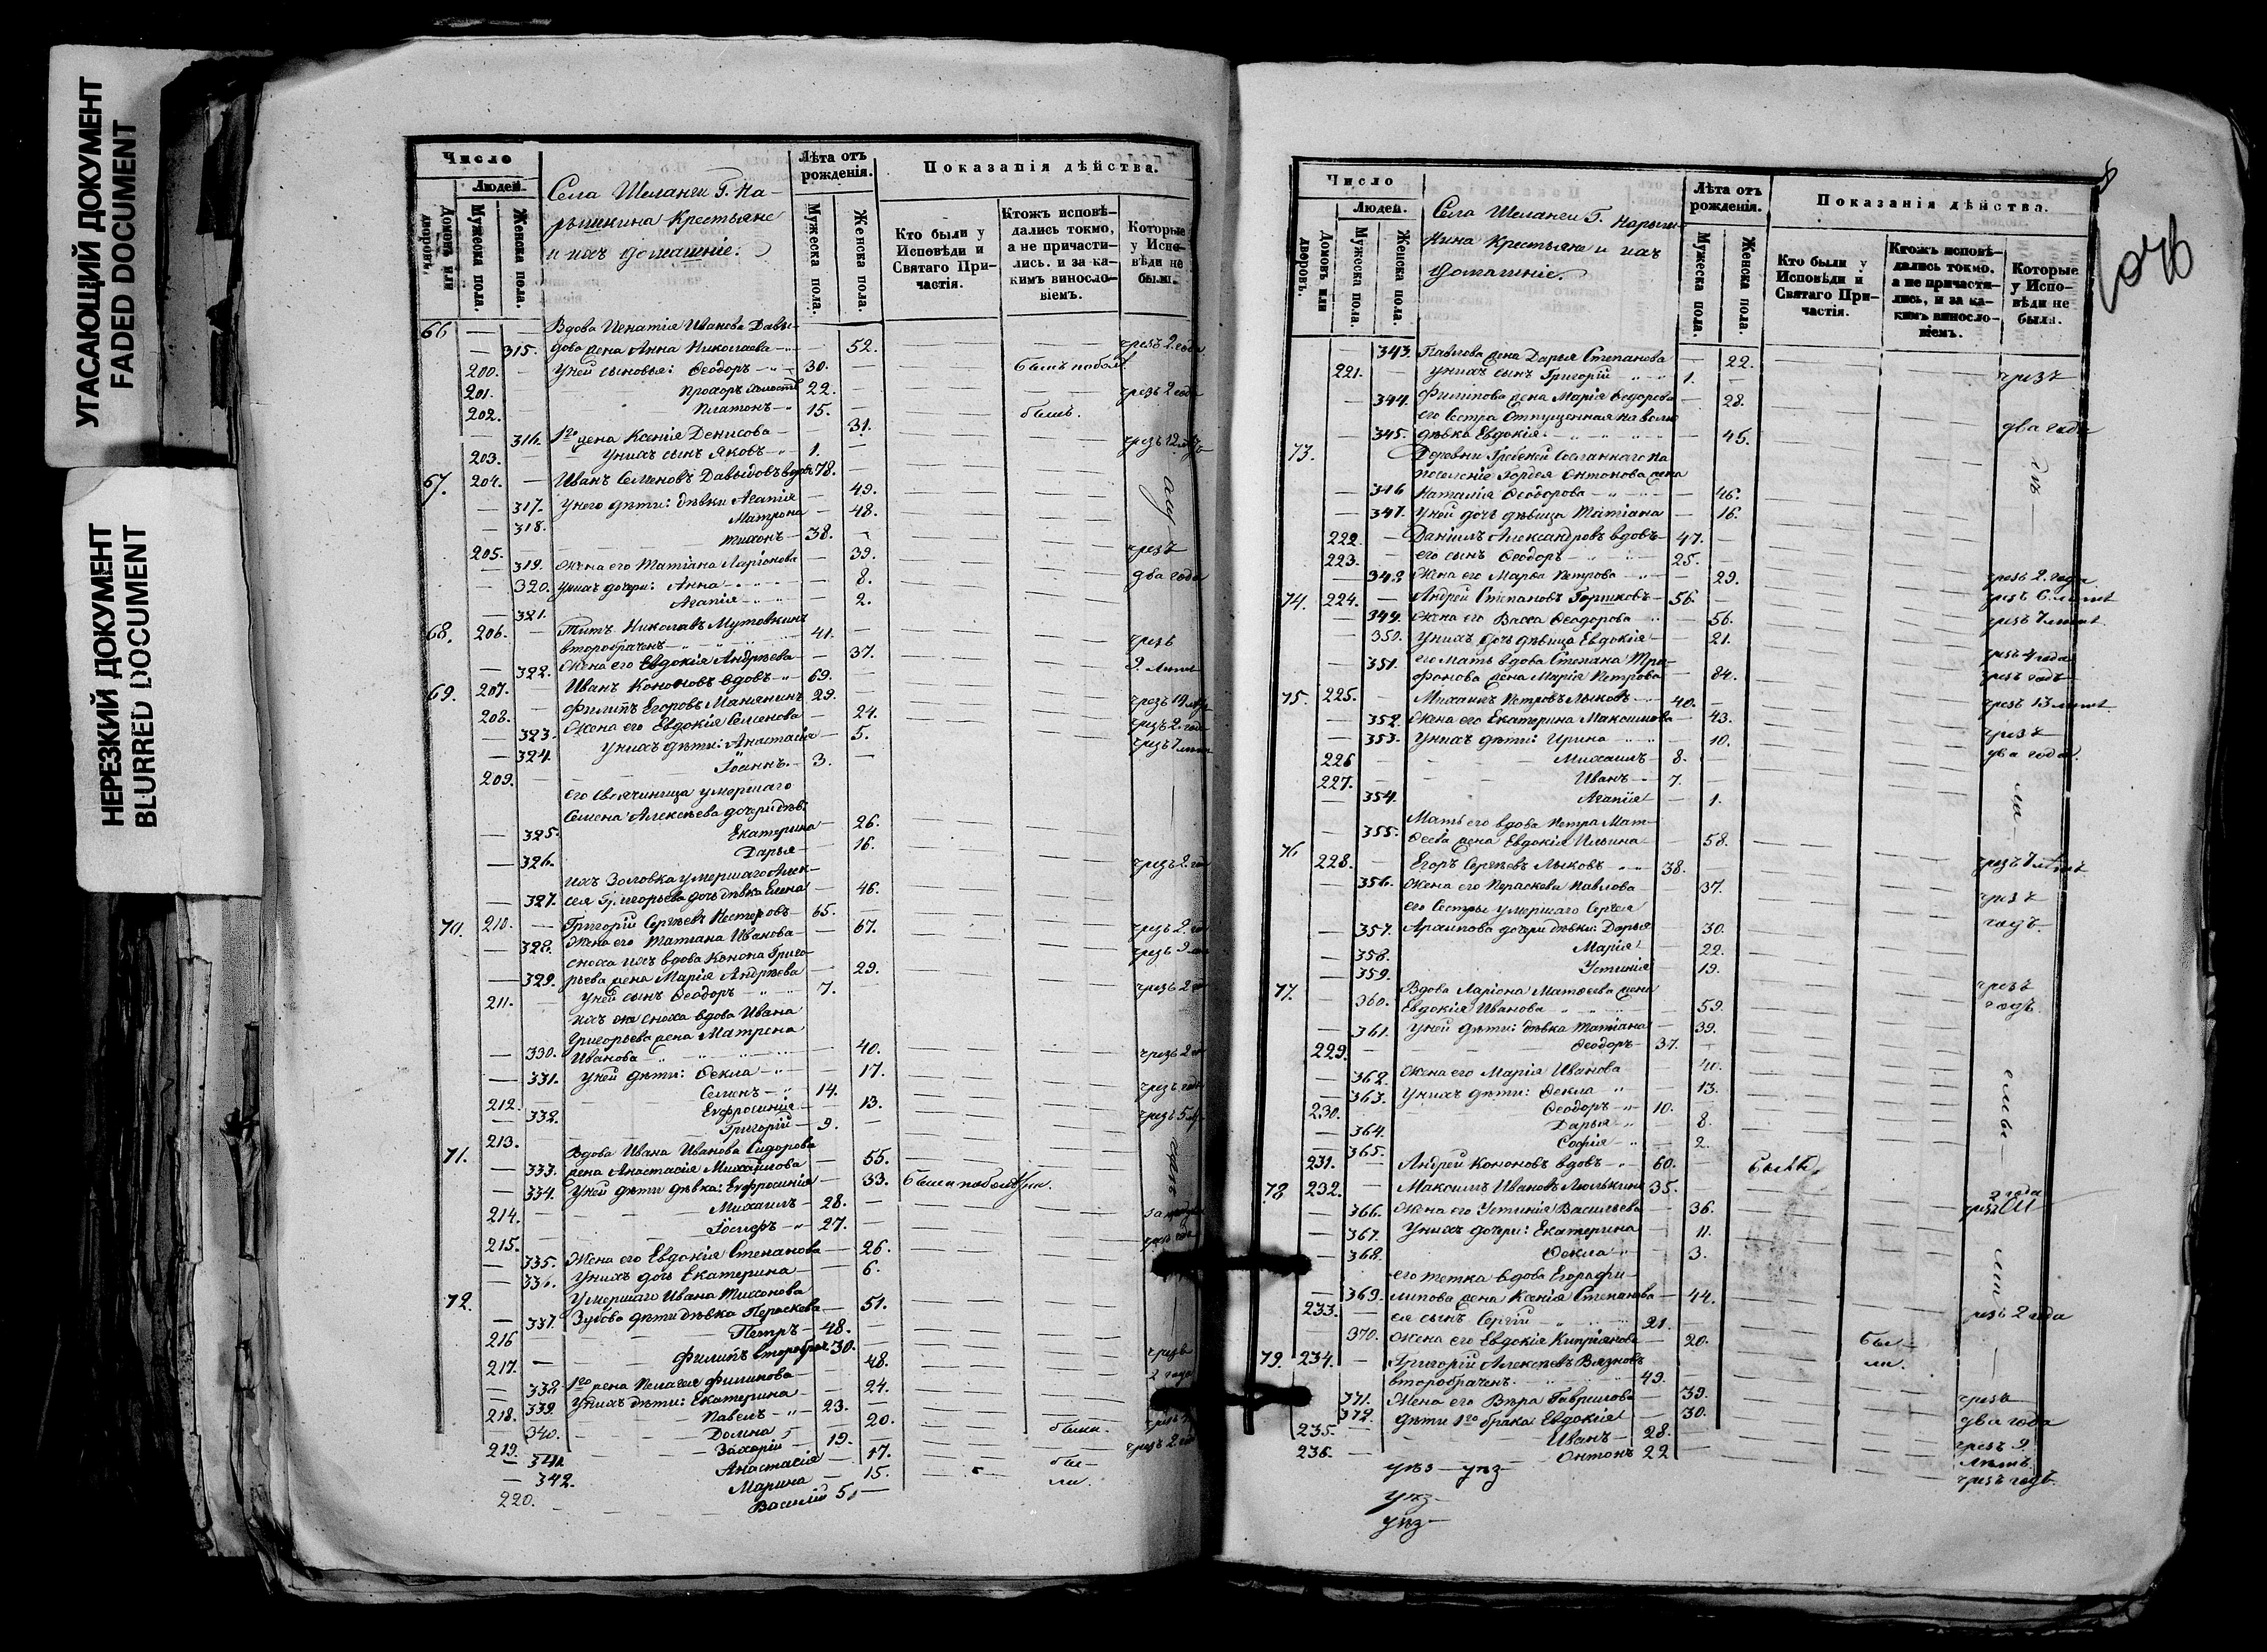 УГАСАЮЩИЙ ДОКУМЕНТ
FADED DOCUMENT
НЕРЕЗКИЙ ДОКУМЕНТ
BLURRED DOCUMENT
Число
Людей.
Домовъ или дворовъ.
Мужеска пола.
Женска пола.
Села Шеланги Г. На-
рышкина Крестьяне
и ихъ домашніе:
Лѣта отъ рожденія.
Мужеска пола.
Женска пола.
Показанія дѣйства.
Кто были у Исповѣди и Святаго При-частія.
Ктожъ исповѣ-дались токмо, а не причасти-лись. и за ка-кимъ винослo-віемъ.
Которые у Испо-вѣди не были.
66 Вдова Игнатія Иванова Давы-
315. дова жена Анна Николаева 52. чрезъ 2. года
200. у ней сыновья: Ѳеодоръ 30.
201. Прохоръ холостъ 22. чрезъ 2 года
202. Платонъ 15. былъ.
316. 1го жена Ксенія Денисова 31.
203. у нихъ сынъ Яковъ 1.
67. 204. Иванъ Семеновъ Давыдовъ вдовъ 78.
317. у него дѣти: дѣвки Агапія 49.
318. Матрона 48.
205. Тихонъ 38.
319. Жена его Татіана Ларіонова 39. чрезъ
320. у нихъ дочери: Анна 8. два года
321. Агапія 2.
68. 206. Титъ Николаевъ Мутовкинъ
второбраченъ 41. чрезъ
322. Жена его Евдокія Андрѣева 37. 9. лѣтъ
207. Иванъ Кононовъ вдовъ 69.
69. 208. Филипъ Егоровъ Манянинъ 29.
323. Жена его Евдокія Семенова 24. чрезъ 2. года
324. у нихъ дѣти: Анастасія 5.
209. Іоаннъ 3.
его свояченица умершаго
Семена Алексѣева дочери дѣв.
325. Екатерина 26.
326. Дарья 16.
ихъ золовка умершаго Алек-
327. сея Григорьева дочь дѣвка Елена 46.
70. 210. Григорій Сергѣевъ Нестеровъ 65.
328. Жена его Татіана Иванова 67.
сноха ихъ вдова Конона Григо-
329. рьева жена Марія Андрѣева 29.
211. у ней сынъ Ѳеодоръ 7.
ихъ же сноха вдова Ивана
Григорьева жена Матрена
330. Иванова 40.
331. у ней дѣти: Ѳекла 17.
212. Семенъ 14.
332. Евфросинія 13.
213. Григорій 9.
71. Вдова Ивана Иванова Сидорова
333. жена Анастасія Михайлова 55.
334. у ней дѣти дѣвка: Евфросинія 33.
214. Михаилъ 28.
215. Іосифъ 27.
335. Жена его Евдокія Степанова 26.
336. у нихъ дочь Екатерина 6.
72. Умершаго Ивана Тихонова
337. Зубова дѣти дѣвка Пераскева 51.
216 Петръ 48.
217. Филипъ второбрач 30. чрезъ
338. 1го жена Пелагея Филипова 48. 2 года
339. у нихъ дѣти: Екатерина 24.
218. Павелъ 23.
340. Домна 20. были.
219. Захарій 19. чрезъ 2 года
341. Анастасія 17. бы-
342. Марина 15. ли.
220. Василій 5.
Число
Людей.
Домовъ или дворовъ.
Мужеска пола.
Женска пола.
Села Шеланги Г. Нарыш-
кина Крестьяне и ихъ
домашніе.
Лѣта отъ рожденія.
Мужеска пола.
Женска пола.
Показанія дѣйства.
Кто были у Исповѣди и Святаго При-частія.
Ктожъ исповѣ-дались токмо, а не причасти-лись, и за ка-кимъ винослo-віемъ.
Которые у Испо-вѣди не были.
343. Павлова жена Дарья Степанова 22.
221. у нихъ сынъ Григорій 1. чрезъ
344. Филипова жена Марія Ѳедорова 28.
его сестра отпущенная на волю
345. дѣвка Евдокія 45. два года
73. Деревни Гребеней сосланнаго на
поселеніе Гордея Антонова жена
346 Наталія Ѳеодорова 46.
347. у ней дочь дѣвица Татіана 16.
222. Даніилъ Александровъ вдовъ 47.
223. его сынъ Ѳеодоръ 25.
348 Жена его Марѳа Петрова 29. чрезъ 2. года
74. 224. Андрей Степановъ Горшковъ 56. чрезъ 6. лѣтъ
349. Жена его Васса Ѳеодорова 56. чрезъ 7 лѣтъ
350. у нихъ дочь дѣвица Евдокія 21.
351. его мать вдова Степана Тро- чрезъ 4 года
фонова жена Марія Петрова 84. чрезъ годъ
75. 225. Михаилъ Петровъ Лыковъ 40. чрезъ 13 лѣтъ
352. Жена его Екатерина Максимова 43.
353. у нихъ дѣти: Ирина 10. чрезъ
226 Михаилъ 8. два года.
227. Иванъ 7.
354. Агапія 1.
Мать его вдова Петра Мат-
355. ѳеева жена Евдокія Ильина 58.
76 228. Егоръ Сергѣевъ Лыковъ 38. чрезъ 7 лѣтъ
356. Жена его Пераскева Павлова 37.
его сестры умершаго Сергея чрезъ
357. Архипова дочери дѣвки: Дарья 30. годъ
358. Марія 22.
359. Устинія 19.
77. Вдова Ларіона Матѳеева жена чрезъ
360. Евдокія Иванова 59. годъ
361. у ней дѣти: дѣвка Татіана 39.
229. Ѳеодоръ 37.
362. Жена его Марія Иванова 40.
363. у нихъ дѣти: Ѳекла 13.
230. Ѳеодоръ 10.
364. Дарья 8.
365. Софія 2.
231. Андрей Кононовъ вдовъ 60. былъ
78 232. Максимъ Ивановъ Люлькинъ 35.
366. Жена его Устинія Васильева 36.
367. у нихъ дочери: Екатерина 11.
368. Ѳекла 3.
его тетка вдова Егора Фи-
369. липова жена Ксенія Степанова 44.
233. ея сынъ Сергій 21. чрезъ 2 года
370. Жена его Евдокія Кипріянова 20. бы-
79. 234. Григорій Алексѣевъ Вязновъ ли.
второбраченъ. 49.
371. Жена его Вѣра Гаврилова 39. чрезъ
372. дѣти 1го брака Евдокія 30. два года
235. Иванъ 28. чрезъ 9.
236. Антонъ 22 лѣтъ
чрезъ годъ.